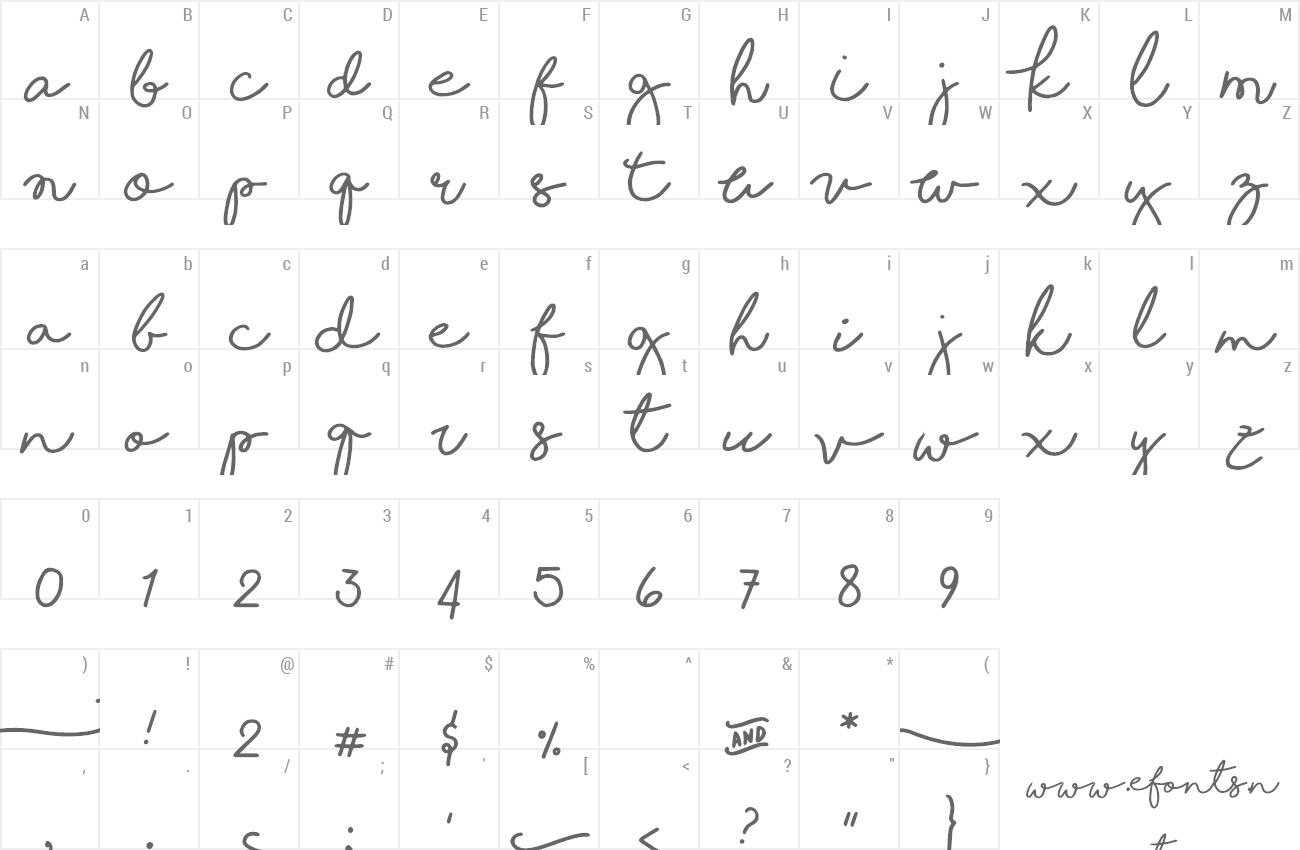 A B C D E F G H I J K L M
a b c d e f g h i j k l m
N O P Q R S T U V W X Y Z
n o p q r s t u v w x y z
a b c d e f g h i j k l m
a b c d e f g h i j k l m
n o p q r s t u v w x y z
n o p q r s t u v w x y z
0 1 2 3 4 5 6 7 8 9
0 1 2 3 4 5 6 7 8 9
) ! @ # $ % ^ & * (
! 2 # $ % AND *
, . / ; ' [ < ? " }
' < ? " }
www.efontsn
t